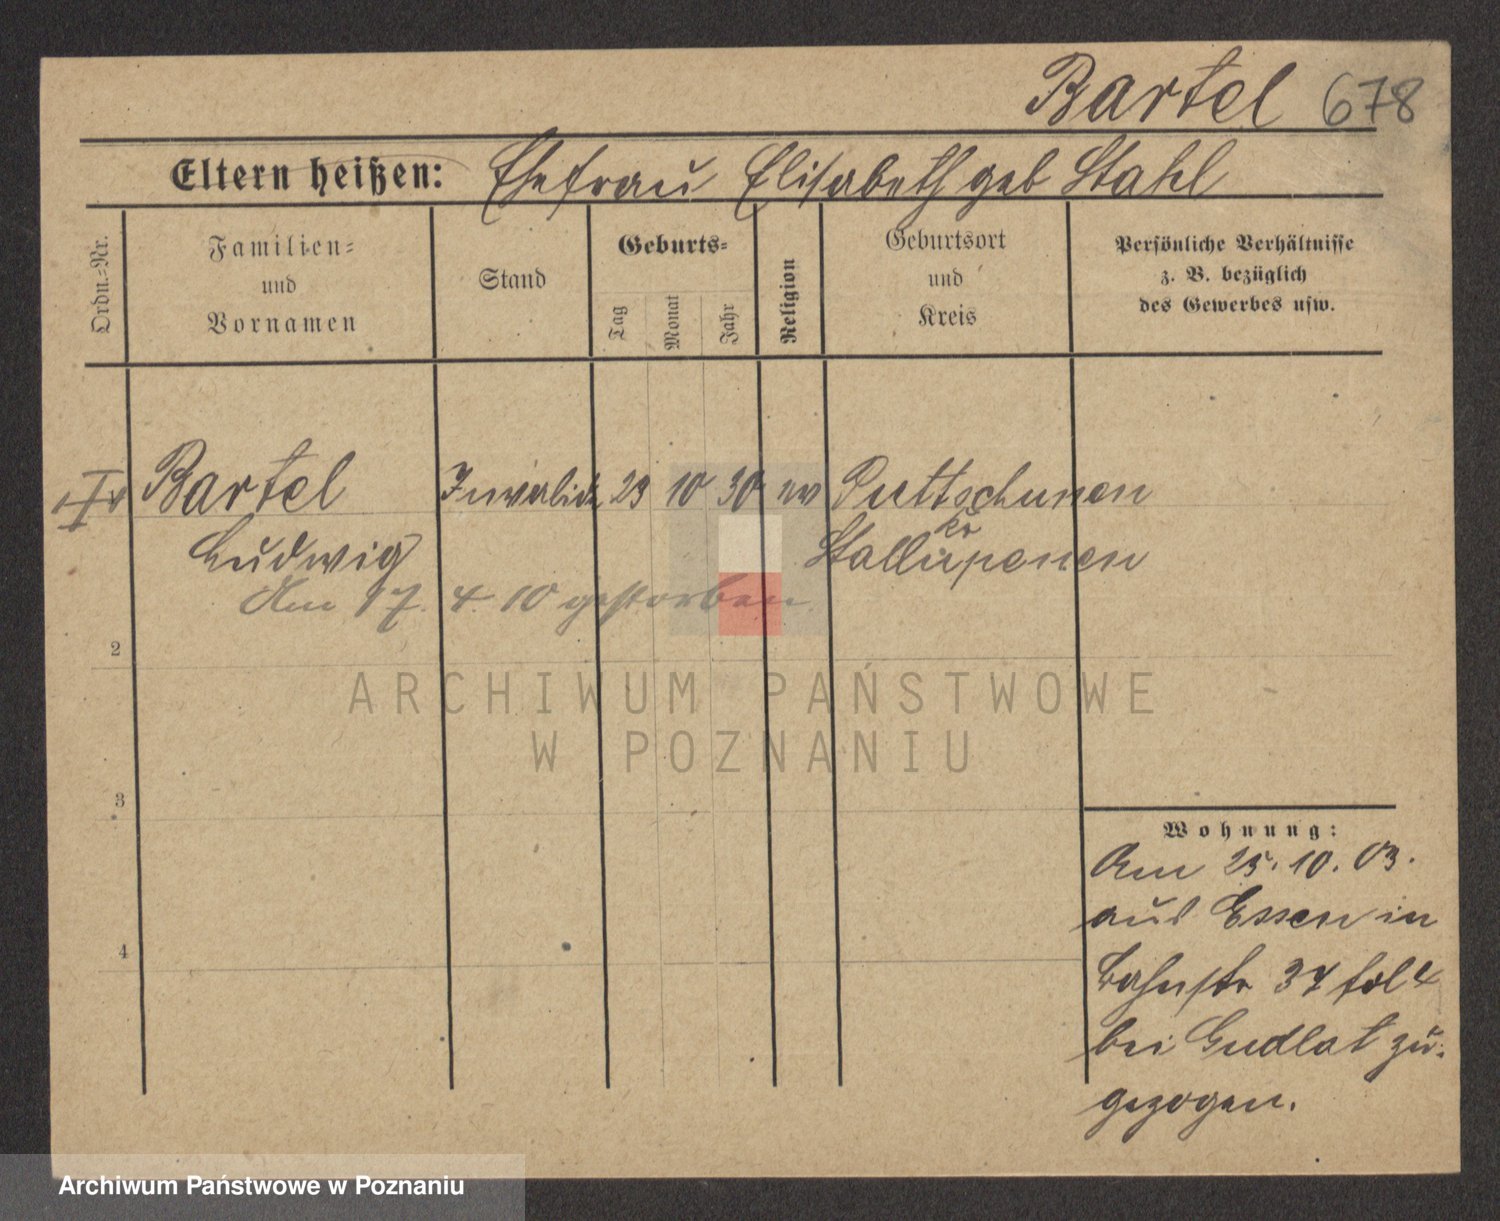 Bartel 678
Eltern heißen: Ehefrau Elisabeth geb Stahl
Ordn.-Nr.
Familien-
und
Vornamen
Stand
Geburts-
Tag
Monat
Jahr
Religion
Geburtsort
und
Kreis
Persönliche Verhältnisse
z. B. bezüglich
des Gewerbes usw.
Bartel Invalide 23 10 30 ev Puttschunen
Kr
Ludwig Stallupönen
Am 17. 4. 10 gestorben.
2
ARCHIWUM PAŃSTWOWE
W POZNANIU
3
Wohnung:
Am 25. 10. 03.
aus Essen in
4
Bahnstr 37
bei Gudlat zu-
gezogen.
Archiwum Państwowe w Poznaniu